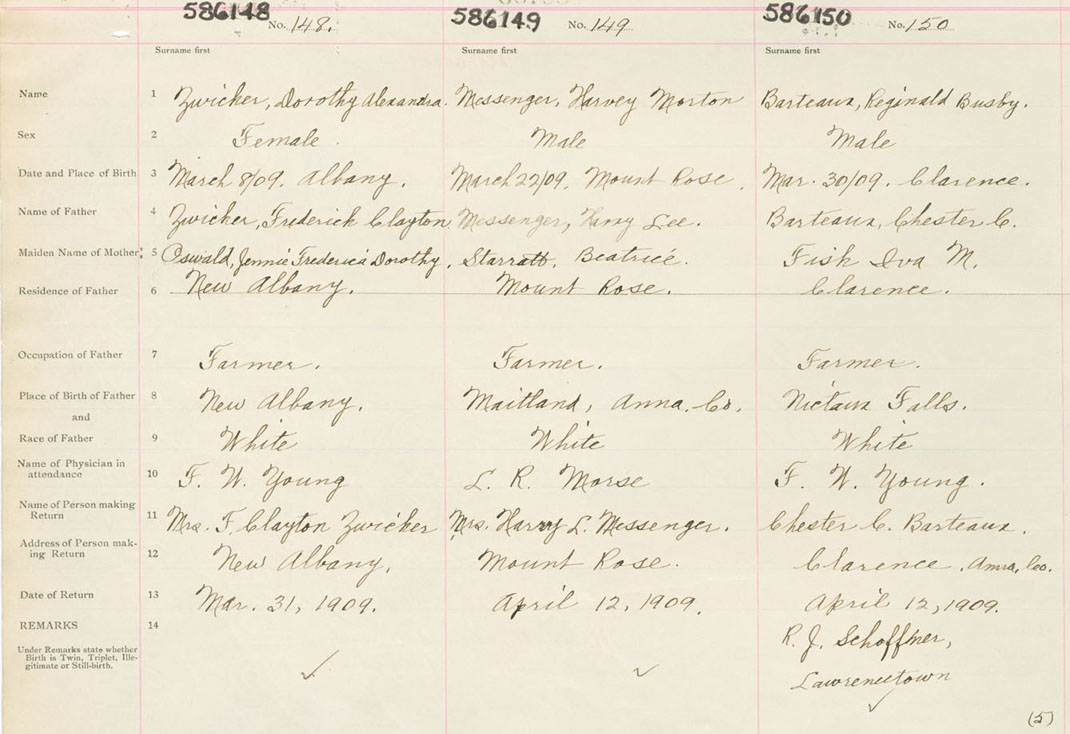 586148 No. 148. 586149 No. 149 586150 No. 150
Surname first Surname first Surname first
Name 1 Zwicker, Dorothy Alexandra. Messenger, Harvey Morton Barteaux, Reginald Busby.
Sex 2 Female. Male Male
Date and Place of Birth 3 March 8/09. Albany. March 22/09. Mount Rose. Mar. 30/09. Clarence.
Name of Father 4 Zwicker, Frederick Clayton Messenger, Harry Lee. Barteaux, Chester C.
Maiden Name of Mother 5 Oswald, Jennie Frederica Dorothy. Starratt, Beatrice. Fisk Iva M.
Residence of Father 6 New Albany. Mount Rose. Clarence.
Occupation of Father 7 Farmer. Farmer. Farmer.
Place of Birth of Father 8 New Albany. Maitland, Anna. Co. Nictaux Falls.
and
Race of Father 9 White White White
Name of Physician in
attendance 10 F. W. Young L. R. Morse F. W. Young.
Name of Person making
Return 11 Mrs. F. Clayton Zwicker Mrs. Harry L. Messenger. Chester C. Barteaux.
Address of Person mak-
ing Return 12 New Albany. Mount Rose. Clarence, Anna. Co.
Date of Return 13 Mar. 31, 1909. April 12, 1909. April 12, 1909.
REMARKS 14 R. J. Schaffner,
Under Remarks state whether
Birth is Twin, Triplet, Ille-
gitimate or Still-birth. ✓ ✓ Lawrencetown
✓
(5)